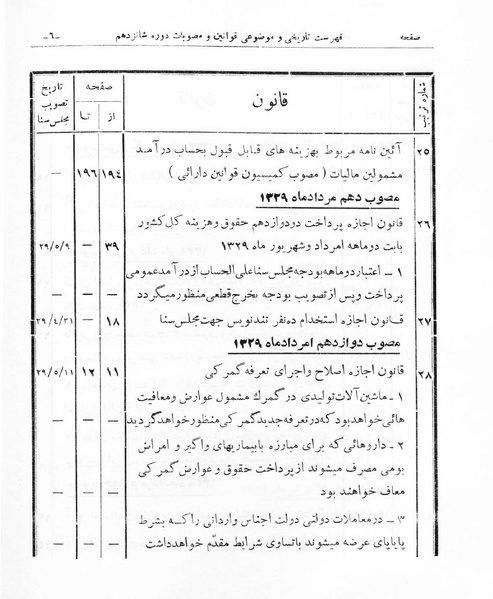 صفحه فهرست تاریخی و موضوعی قوانین و مصوبات دوره شانزدهم -٦-
شماره ترتیب قانون صفحه تاریخ تصویب مجلس سنا
از تا
۲٥ آئین نامه مربوط بهزینه های قابل قبول بحساب درآمد
مشمولین مالیات ( مصوب کمیسیون قوانین دارائی ) ۱۹٤ ۱۹٦ —
مصوب دهم مردادماه ۱۳۲۹
۲٦ قانون اجازه پرداخت دودوازدهم حقوق وهزینه کل کشور
بابت دوماهه امرداد وشهریور ماه ۱۳۲۹ ۳۹ — ۲۹/٥/۹
۱ - اعتبار دوماهه بودجه مجلس سنا علی الحساب از درآمد عمومی
پرداخت و پس از تصویب بودجه بخرج قطعی منظور میگردد — — —
۲۷ قانون اجازه استخدام ده نفر تندنویس جهت مجلس سنا ۱۸ — ۲۹/٤/۳۱
مصوب دوازدهم امردادماه ۱۳۲۹
۲۸ قانون اجازه اصلاح واجرای تعرفه گمرکی ۱۱ ۱۲ ۲۹/٥/۱۱
۱ - ماشین آلات تولیدی در گمرک مشمول عوارض ومعافیت
هائی خواهد بود که در تعرفه جدید گمرکی منظور خواهد گردید — — —
۲ - داروهائی که برای مبارزه بابیماریهای واگیر و امراض
بومی مصرف میشوند از پرداخت حقوق و عوارض گمرکی
معاف خواهند بود — — —
۳ - در معاملات دولتی دولت اجناس وارداتی راکه بشرط
پایاپای عرضه میشوند باتساوی شرایط مقدّم خواهد داشت — — —